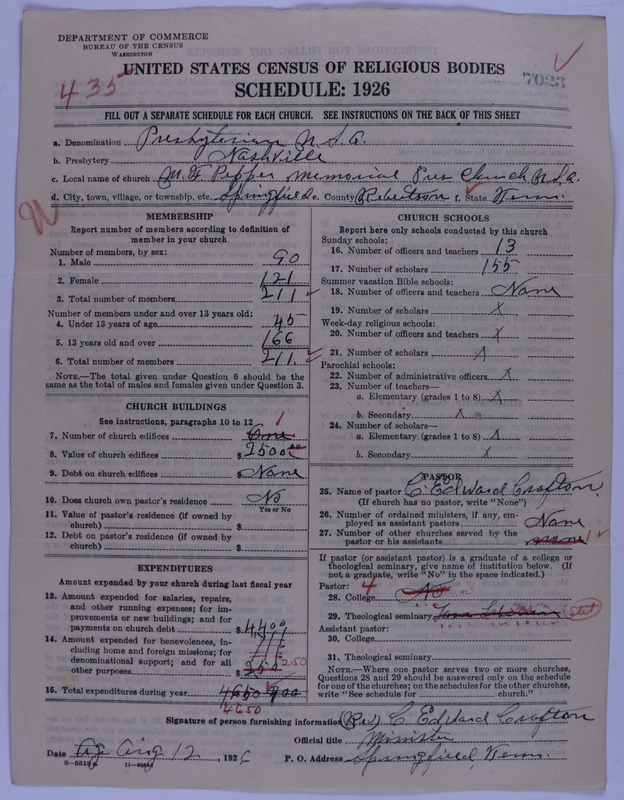 DEPARTMENT OF COMMERCE
BUREAU OF THE CENSUS
WASHINGTON
UNITED STATES CENSUS OF RELIGIOUS BODIES
SCHEDULE: 1926
435
7023
FILL OUT A SEPARATE SCHEDULE FOR EACH CHURCH. SEE INSTRUCTIONS ON THE BACK OF THIS SHEET
a. Denomination Presbyterian U.S.A.
b. Presbytery Nashville
c. Local name of church M. F. Pepper Memorial Pres Church U.S.A.
d. City, town, village, or township, etc. Springfield e. County Robertson f. State Tenn.
MEMBERSHIP
Report number of members according to definition of
member in your church
Number of members, by sex:
1. Male 90
2. Female 121
3. Total number of members 211
Number of members under and over 13 years old:
4. Under 13 years of age 45
5. 13 years old and over 166
6. Total number of members 211
NOTE.—The total given under Question 6 should be
same as the total of males and females given under Question 3.
CHURCH BUILDINGS
See instructions, paragraphs 10 to 12
7. Number of church edifices One 1
8. Value of church edifices $ 25000
9. Debt on church edifices $ None
10. Does church own pastor's residence No
Yes or No
11. Value of pastor's residence (if owned by
church) $
12. Debt on pastor's residence (if owned by
church) $
EXPENDITURES
Amount expended by your church during last fiscal year
13. Amount expended for salaries, repairs,
and other running expenses; for im-
provements or new buildings; and for
payments on church debt $ 4400
14. Amount expended for benevolences, in-
cluding home and foreign missions; for
denominational support; and for all
other purposes $ 250 250
15. Total expenditures during year 4650
4650
CHURCH SCHOOLS
Report here only schools conducted by this church
Sunday schools:
16. Number of officers and teachers 13
17. Number of scholars 155
Summer vacation Bible schools:
18. Number of officers and teachers None
19. Number of scholars X
Week-day religious schools:
20. Number of officers and teachers X
21. Number of scholars X
Parochial schools:
22. Number of administrative officers X
23. Number of teachers—
a. Elementary (grades 1 to 8) X
b. Secondary X
24. Number of scholars—
a. Elementary (grades 1 to 8) X
b. Secondary X
PASTOR
25. Name of pastor C Edward Crofton
(If church has no pastor, write "None")
26. Number of ordained ministers, if any, em-
ployed as assistant pastors None
27. Number of other churches served by the
pastor or his assistants None 1
If pastor (or assistant pastor) is a graduate of a college or
theological seminary, give name of institution below. (If
not a graduate, write "No" in the space indicated.)
Pastor: 4
28. College No
29. Theological seminary Stet
Assistant pastor:
30. College
31. Theological seminary
NOTE.—Where one pastor serves two or more churches,
Questions 28 and 29 should be answered only on the schedule
for one of the churches; on the schedules for the other churches,
write "See schedule for church."
Signature of person furnishing information (Rev) C. Edward Crofton
Official title Minister
Date Aug 12, 1926 P. O. Address Springfield, Tenn.
8-5518a 11-9588